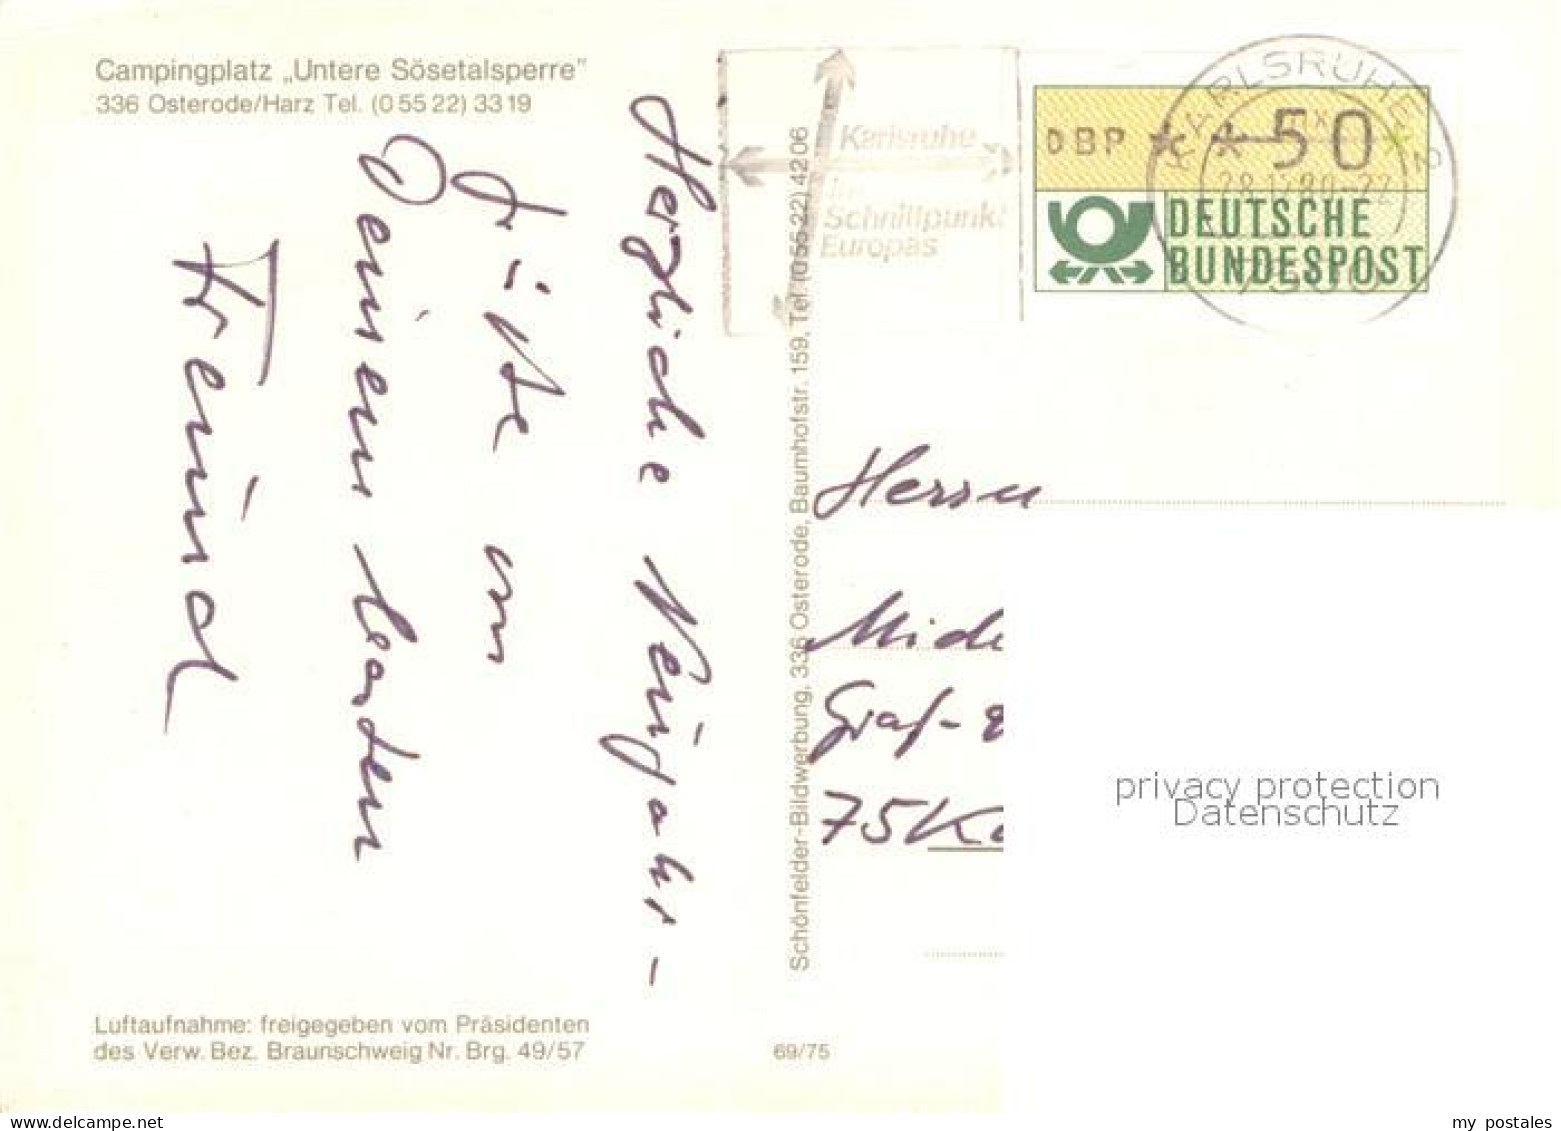 Campingplatz „Untere Sösetalsperre"
336 Osterode/Harz Tel. (0 55 22) 33 19
Herzliche Neujahrs-
Grüße an
Deinem
Freund
Luftaufnahme: freigegeben vom Präsidenten
des Verw. Bez. Braunschweig Nr. Brg. 49/57
69/75
Schönfelder-Bildwerbung, 336 Osterode, Baumhofstr. 159, Tel. (0 55 22) 42 06
Karlsruhe
im
Schnittpunkt
Europas
KARLSRUHE
7500
DBP * * 50
DEUTSCHE
BUNDESPOST
Herrn
Graf-
75 Ka
privacy protection
Datenschutz
my postales
www.delcampe.net